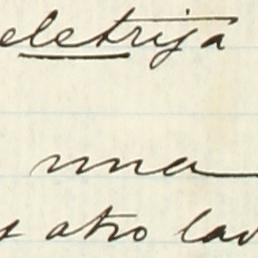 eletrija
una
y otro lad